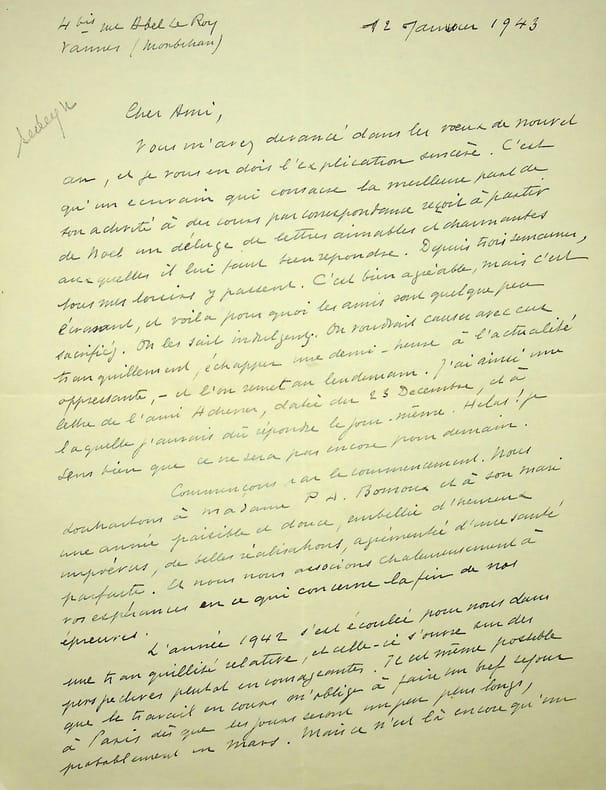 4 bis rue Abel Le Roy
Vannes (Morbihan)
12 Janvier 1943
Cher Ami,
Vous m'avez devancé dans les voeux de nouvel
an, et je vous en dois l'explication sincère. C'est
qu'un écrivain qui consacre la meilleure part de
son activité à des cours par correspondance reçoit à partir
de Noël un déluge de lettres aimables et charmantes
auxquelles il lui faut bien répondre. Depuis trois semaines,
tous mes loisirs y passent. C'est bien agréable, mais c'est
écrasant, et voilà pourquoi les amis sont quelque peu
sacrifiés. On les sait indulgents. On voudrait causer avec eux
tranquillement, échapper une demi-heure à l'actualité
oppressante, - et l'on remet au lendemain. J'ai ainsi une
lettre de l'ami, datée du 23 Décembre, et à
laquelle j'aurais dû répondre le jour-même. Hélas! je
sens bien que ce ne sera pas encore pour demain.
Commençons par le commencement. Nous
souhaitons à Madame P. A. et à son mari
une année paisible et douce, embellie d'heureux
imprévus, de belles réalisations, agrémentée d'une santé
parfaite. Et nous nous associons chaleureusement à
vos espérances en ce qui concerne la fin de nos
épreuves.
L'année 1942 s'est écoulée pour nous dans
une tranquillité relative, et celle-ci s'ouvre sur des
perspectives plutôt encourageantes. Il est même possible
que le travail en cours m'oblige à faire un bref séjour
à Paris dès que les jours seront un peu plus longs,
probablement en mars. Mais ce n'est là encore qu'un